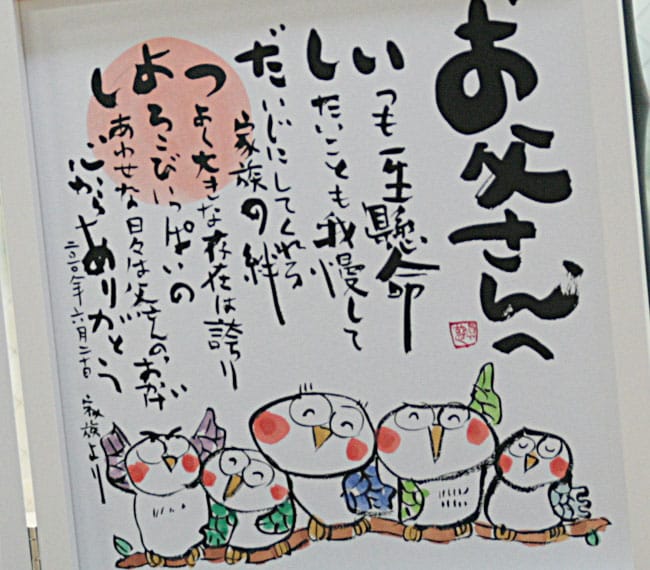 お父さんへ
いつも一生懸命
したいことも我慢して
だいじにしてくれる
家族の絆
つよく大きな存在は誇り
よろこびいっぱいの
しあわせな日々は父さんのおかげ
心からありがとう
二〇一〇年六月二十日 家族より